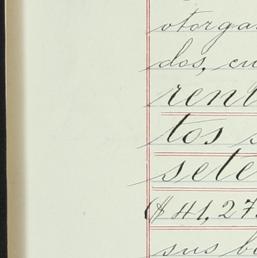 otorga
dos, cu
rent
tos s
sete
($41,27
sus b